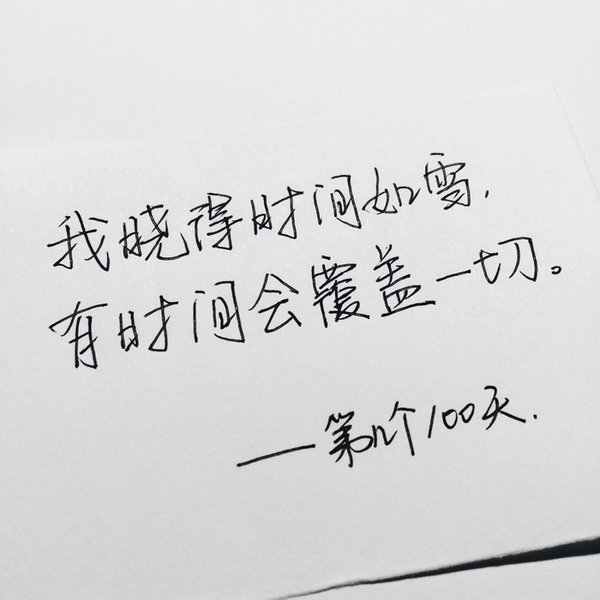 我晓得时间如雪，
有时间会覆盖一切。
——第几个100天.